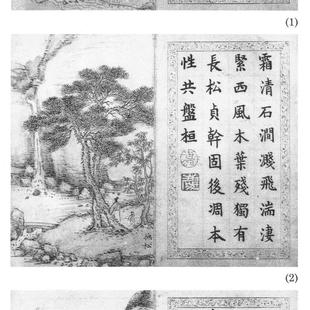 (1)
霜清石澗濺飛湍淒
緊西風木葉殘獨有
長松貞幹固後凋本
性共盤桓
撫松
(2)